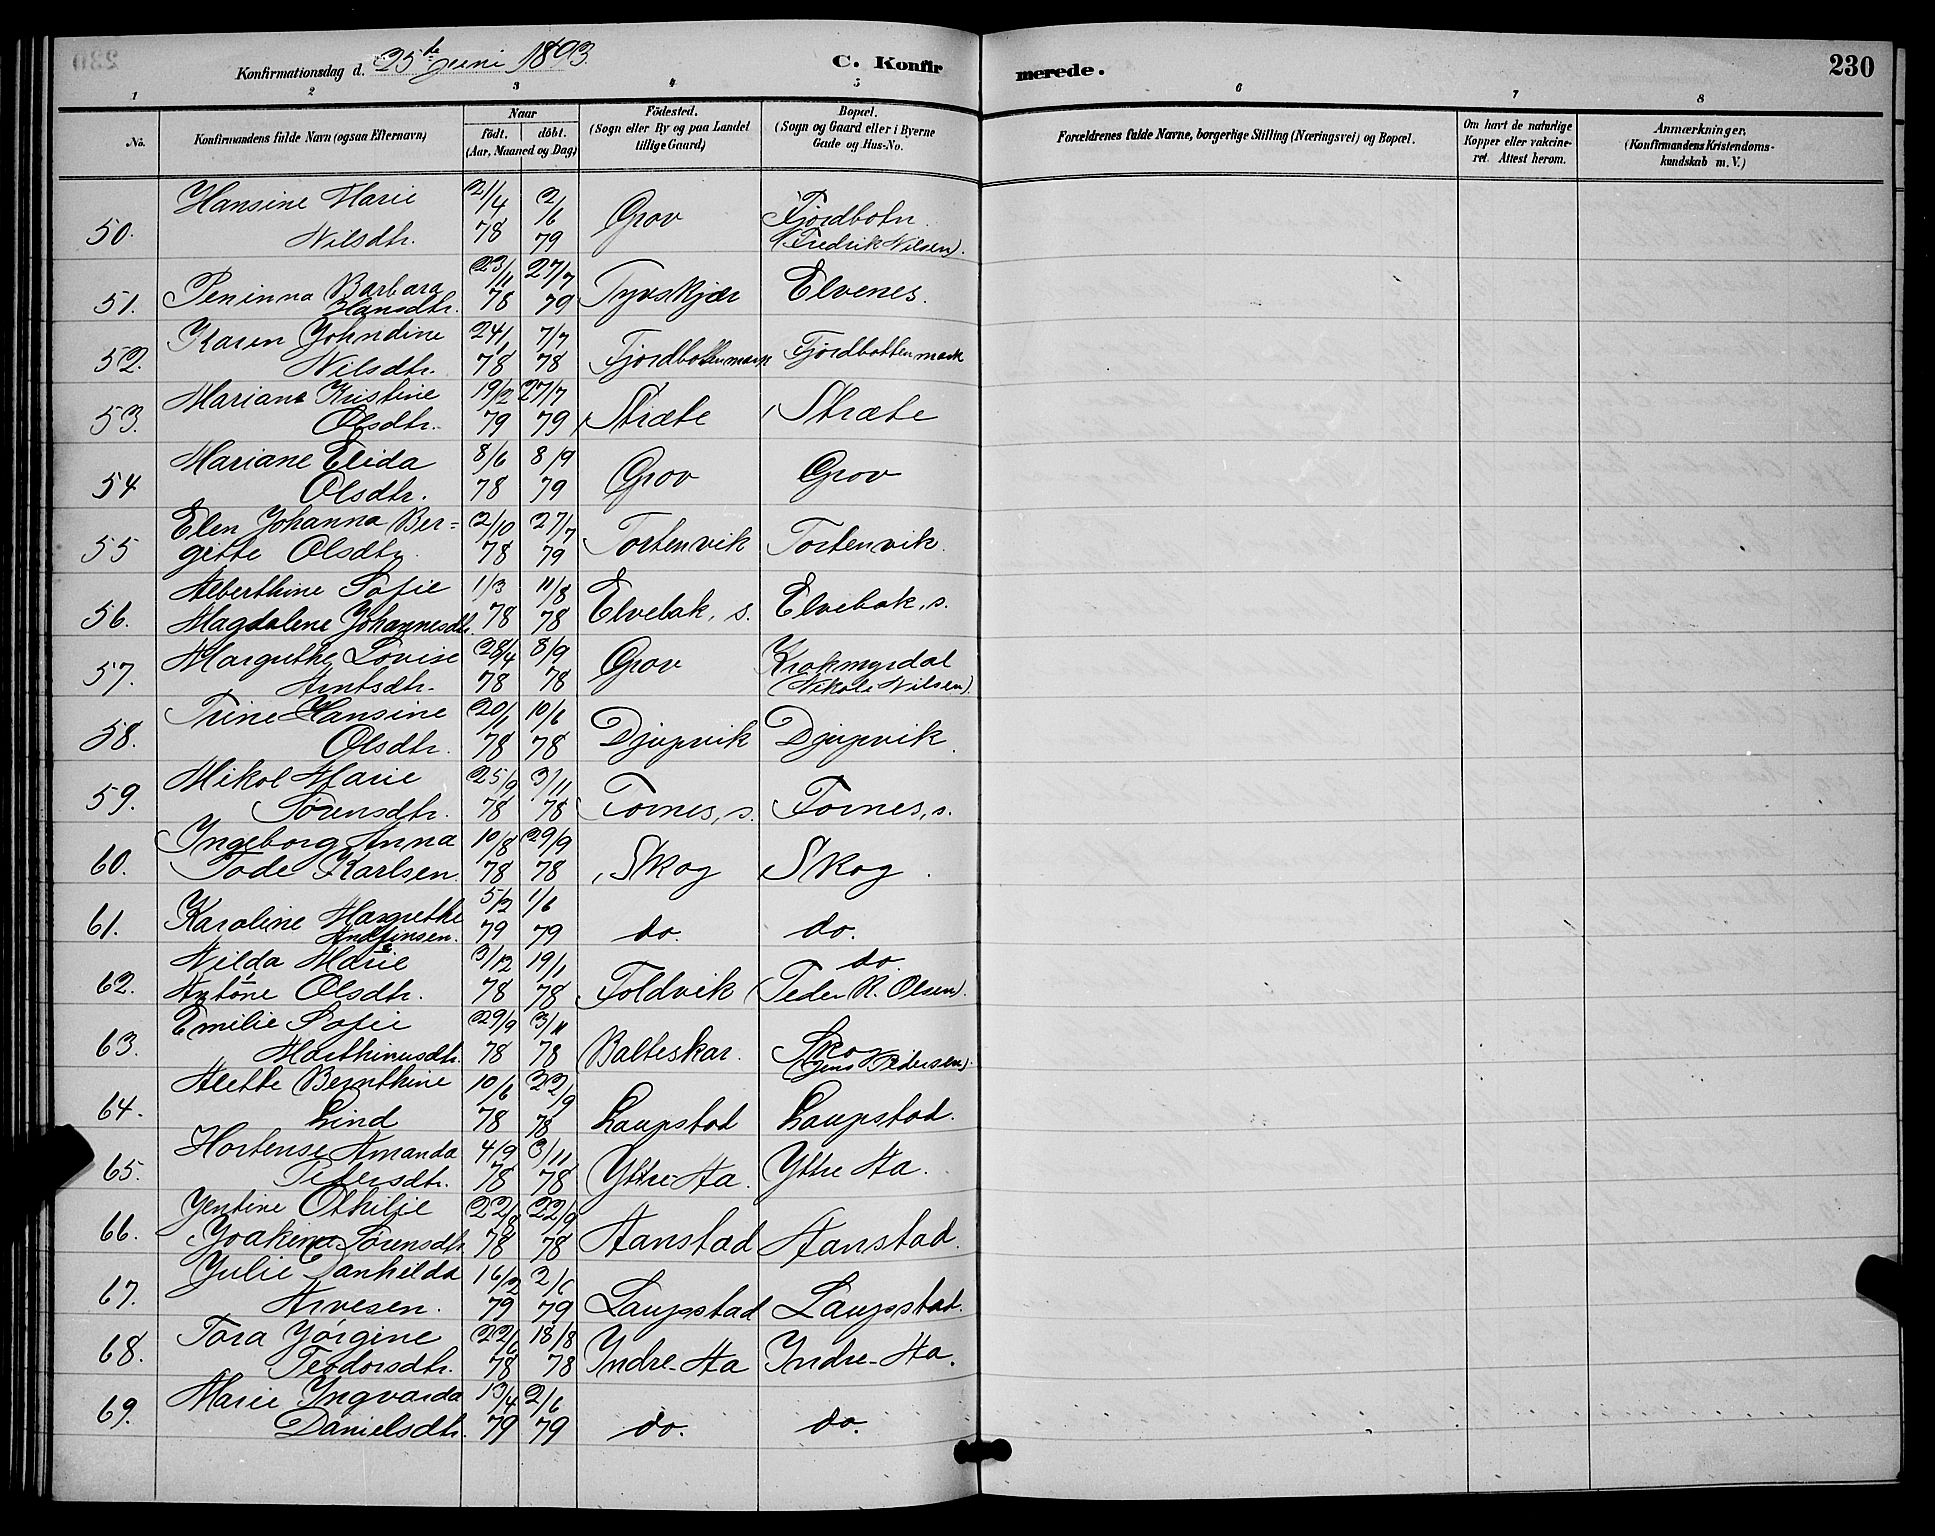 Konfirmationsdag d. 25de Juni 1893.
C. Konfirmerede.
230
1 2 3 4 5 6 7 8
No.
Konfirmandens fulde Navn (ogsaa Efternavn)
Naar
födt. döbt.
(Aar, Maaned og Dag)
Födested.
(Sogn eller By og paa Landet
tillige Gaard)
Bopæl.
(Sogn og Gaard eller i Byerne
Gade og Hus-No.
Forældrenes fulde Navne, borgerlige Stilling (Næringsvei) og Bopæl.
Om havt de naturlige
Kopper eller vakcine-
ret. Attest herom.
Anmærkninger.
(Konfirmandens Kristendoms-
kundskab m. V.)
Hansine Marie 21/4 2/6 Fjordbotn
50. Nilsdtr. 78 79 Grov (Fredrik Nilsen).
Peninna Barbara 23/11 27/7
51. Hansdtr. 78 79 Tyvskjær Elvenes.
Karen Johndine 24/1 7/7
52. Nilsdtr. 78 78 Fjordbottenmark Fjordbottenmark
Mariane Kristine 19/2 27/7
53. Olsdtr. 79 79 Stræte Stræte
Mariane Elida 8/6 8/9
54 Olsdtr. 78 79 Grov Grov
Elen Johanna Ber= 2/10 27/7
55 gitte Olsdtr. 78 79 Tortenvik Tortenvik.
Alberthine Sofie 1/3 11/8
56. Magdalene Johannesdtr. 78 78 Elvebak, s. Elvebak, s.
Margrethe Lovise 28/4 8/9 Krokmyrdal
57. Arntsdtr. 78 78 Grov (Nikolai Nilsen).
Trine Hansine 20/1 10/6
58. Olsdtr. 78 78 Djupvik Djupvik.
Mikol Marie 25/9 3/11
59. Sørensdtr. 78 78 Fornes, s. Fornes, s.
Ingeborg Anna 10/8 29/9
60. Tode Karlsen 78 78 Skog Skog.
Karoline Margrethe 5/2 1/6
61. Andfinsen. 79 79 do. do.
Nilda Marie 3/12 19/1 do.
62. Antone Olsdtr. 78 78 Foldvik (Peder N. Olsen).
Emilie Sofie 29/9 3/11 Skog
63. Marthinusdtr. 78 78 Balteskar. (Jens Pedersen).
Alette Bernthine 10/6 22/9
64. Lind 78 78 Laupstad Laupstad.
Hortense Amanda 4/9 3/11
65. Petersdtr. 78 78 Yttre-Aa. Yttre Aa.
Jentine Othilie 22/8 22/9
66. Joakima Sørensdtr. 78 78 Aanstad Aanstad.
Julie Danhilda 16/2 2/6
67. Arvesen. 79 79 Laupstad Laupstad.
Tora Jørgine 22/6 18/8
68. Teodorsdtr. 78 78 Indre-Aa Indre-Aa.
Marie Ingvarda 13/4 2/6
69. Danielsdtr. 79 79 do. do.